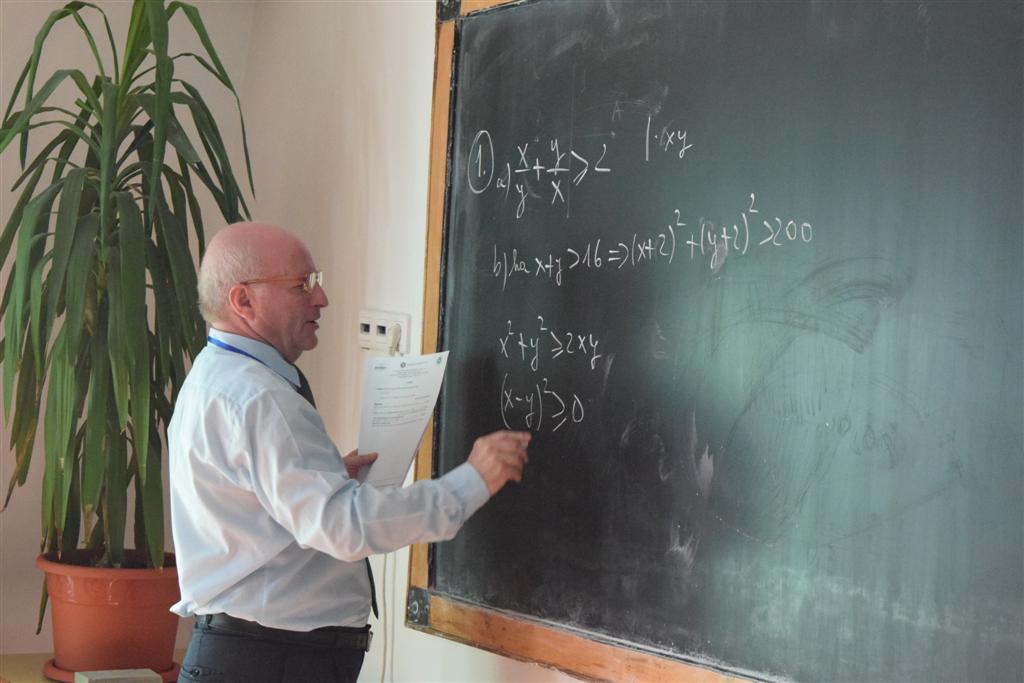 1. a) x/y + y/x ⩾ 2 | · xy
b) ha x+y > 16 ⇒ (x+2)² + (y+2)² > 200
x² + y² ⩾ 2xy
(x-y)² ⩾ 0